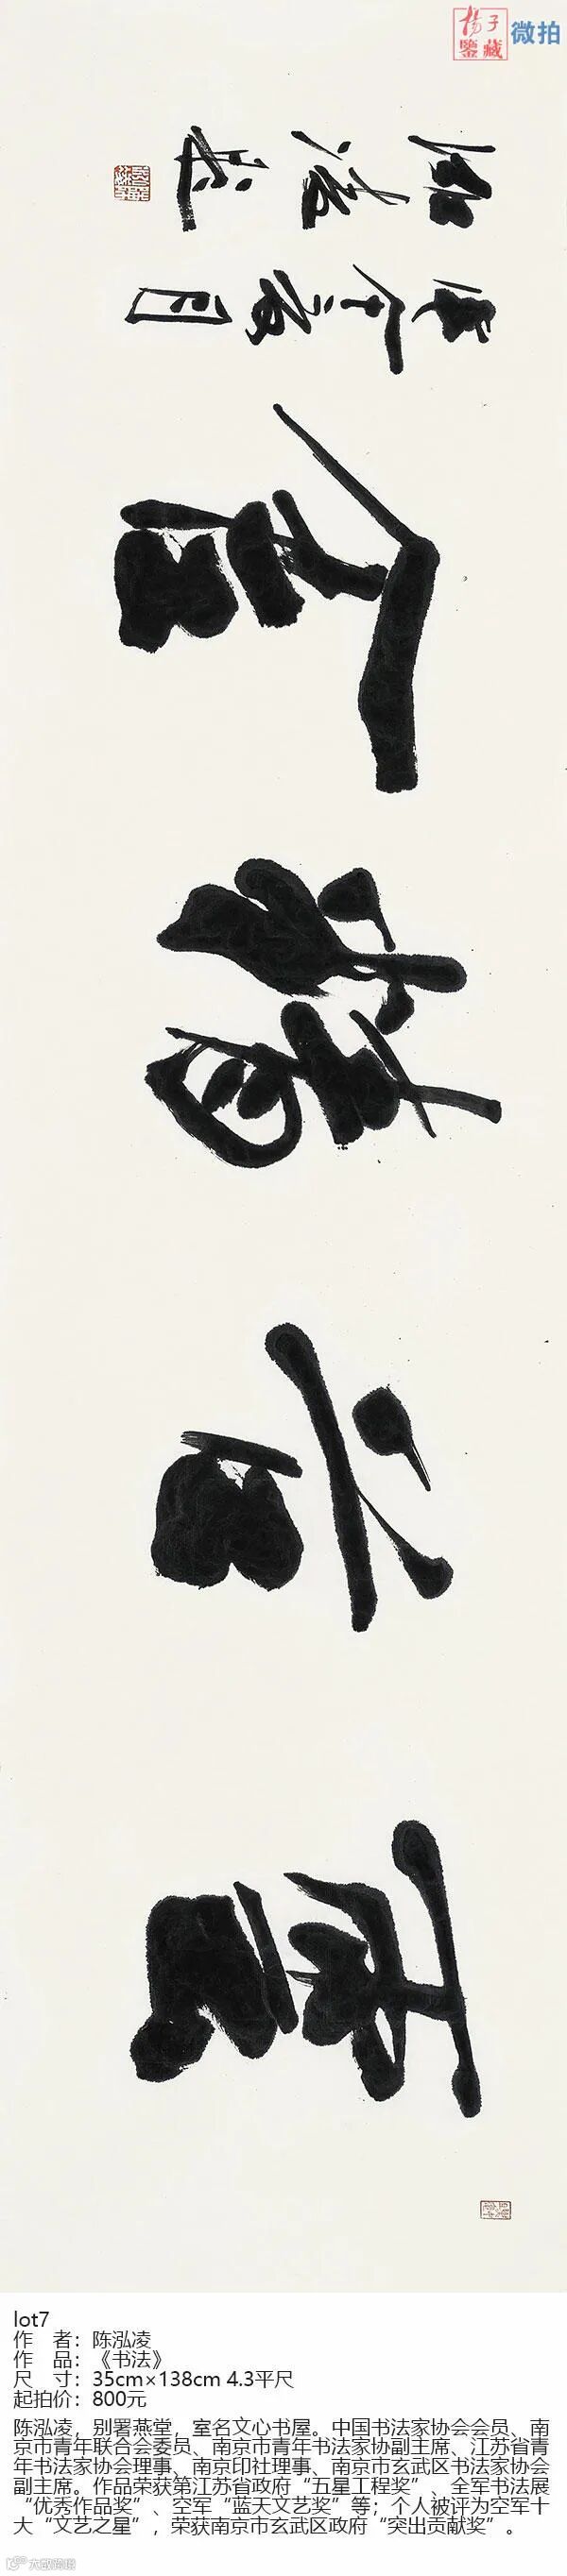 揚子
鑒藏
微拍
雲谷精舍
lot7
作 者：陈泓凌
作 品：《书法》
尺 寸：35cm×138cm 4.3平尺
起拍价：800元
陈泓凌，别署燕堂，室名文心书屋。中国书法家协会会员、南
京市青年联合会委员、南京市青年书法家协副主席、江苏省青
年书法家协会理事、南京印社理事、南京市玄武区书法家协会
副主席。作品荣获第江苏省政府“五星工程奖”、全军书法展
“优秀作品奖”、空军“蓝天文艺奖”等；个人被评为空军十
大“文艺之星”，荣获南京市玄武区政府“突出贡献奖”。